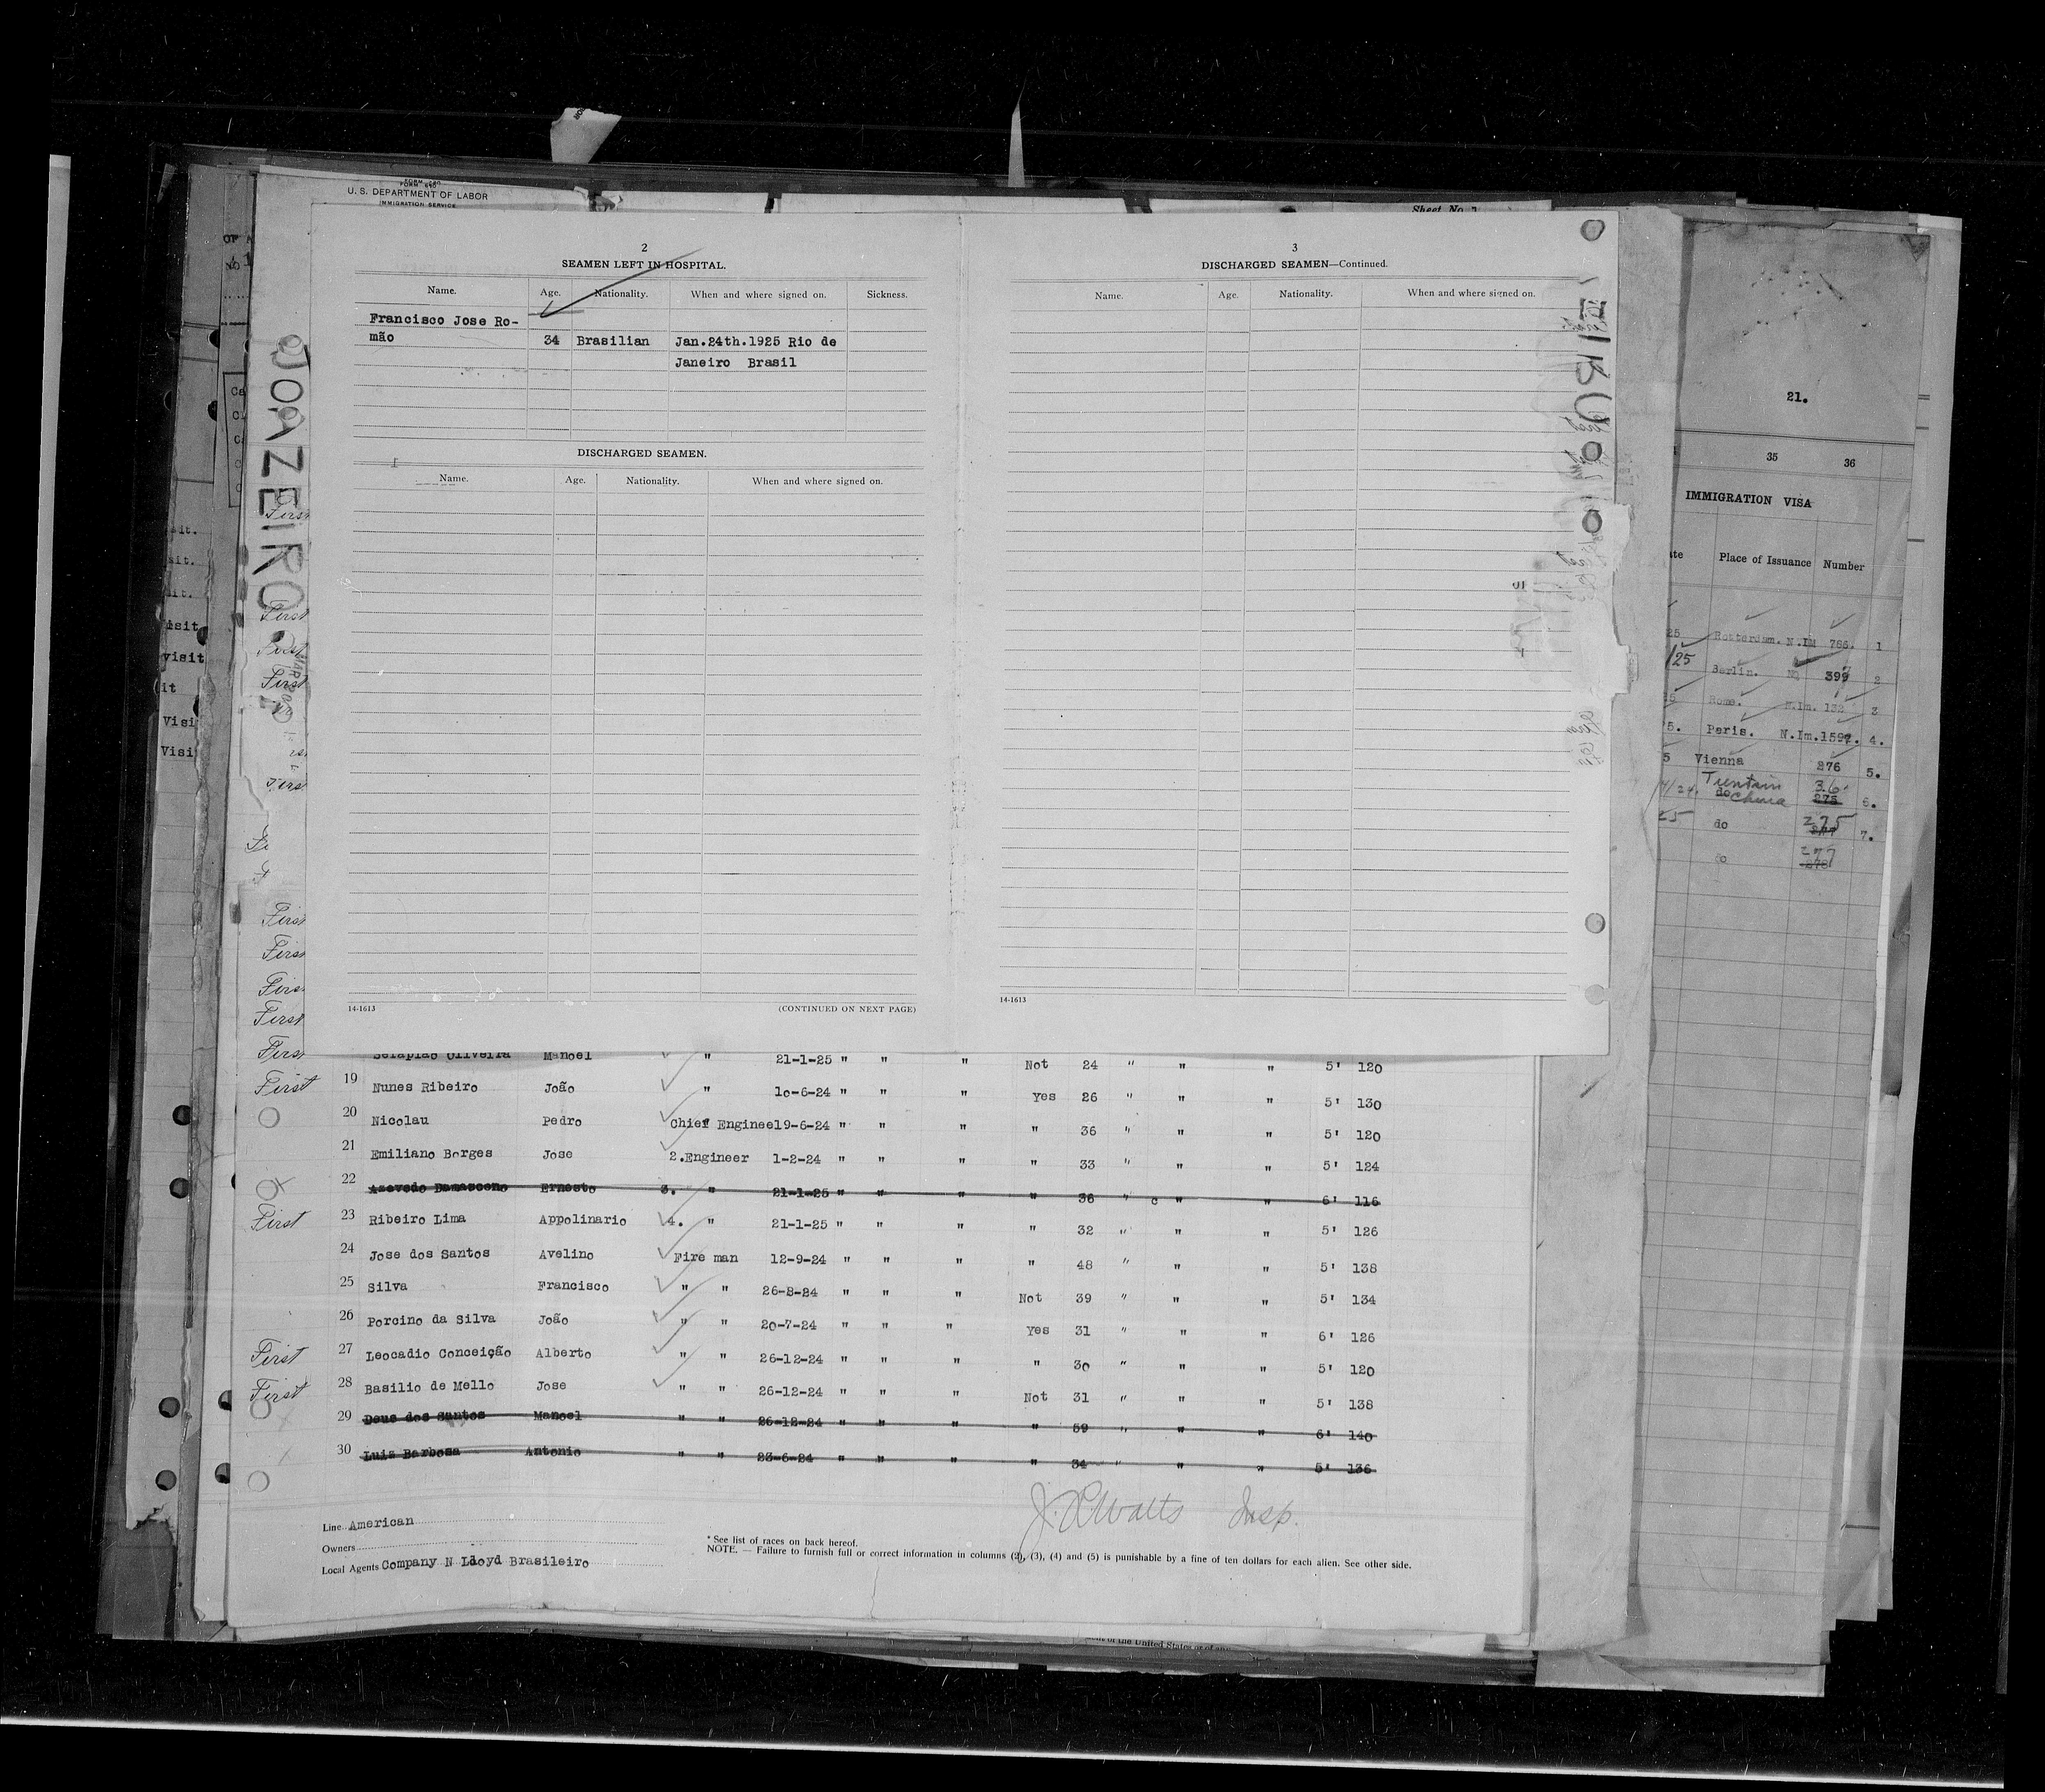 U. S. DEPARTMENT OF LABOR
IMMIGRATION SERVICE
Sheet No.
2
SEAMEN LEFT IN HOSPITAL.
Name. Age. Nationality. When and where signed on. Sickness.
Francisco Jose Ro-
mão 34 Brasilian Jan.24th.1925 Rio de
Janeiro Brasil
DISCHARGED SEAMEN.
Name. Age. Nationality. When and where signed on.
14-1613 (CONTINUED ON NEXT PAGE)
3
DISCHARGED SEAMEN—Continued.
Name. Age. Nationality. When and where signed on.
14-1613
JOAZEIRO
21.
35 36
IMMIGRATION VISA
Place of Issuance Number
25 Rotterdam. N.IM 786. 1
/25 Berlin. No 399 2
25 Rome. N.Im. 132 3
5. Paris. N.Im.159 4.
5 Vienna 276 5.
do China 36 275 6.
25 do 275 7.
277
visit
it
Visi
Visi
First
First
First
First
First
First
First
First
First
Serapião Oliveira Manoel " 21-1-25 " " " Not 24 " " " 5' 120
First 19 Nunes Ribeiro João " 10-6-24 " " " Yes 26 " " " 5' 130
20 Nicolau Pedro Chief Enginee19-6-24 " " " " 36 " " " 5' 120
21 Emiliano Borges Jose 2.Engineer 1-2-24 " " " " 33 " " " 5' 124
22 Azevedo Damasceno Ernesto 3. " 21-1-25 " " " " 36 " c " " 6' 116
First 23 Ribeiro Lima Appolinario 4. " 21-1-25 " " " " 32 " " " 5' 126
24 Jose dos Santos Avelino Fire man 12-9-24 " " " " 48 " " " 5' 138
25 Silva Francisco " " 26-8-24 " " " Not 39 " " " 5' 134
26 Porcino da Silva João " " 20-7-24 " " " Yes 31 " " " 6' 126
First 27 Leocadio Conceição Alberto " " 26-12-24 " " " " 30 " " " 5' 120
First 28 Basilio de Mello Jose " " 26-12-24 " " " Not 31 " " " 5' 138
29 Deus dos Santos Manoel " " 26-12-24 " " " " 59 " " " 6' 140
30 Luis Barbosa Antonio " " 23-6-24 " " " " 34 " " " 5' 136
J. R Watts Insp.
Line American
Owners
Local Agents Company N Lloyd Brasileiro
* See list of races on back hereof.
NOTE. — Failure to furnish full or correct information in columns (2), (3), (4) and (5) is punishable by a fine of ten dollars for each alien. See other side.
of the United States or of any